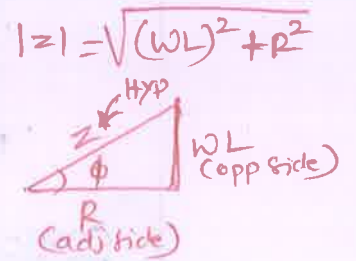 |z| = √(WL)² + R²
Hyp
Z
φ
WL
(opp side)
R
(adj side)